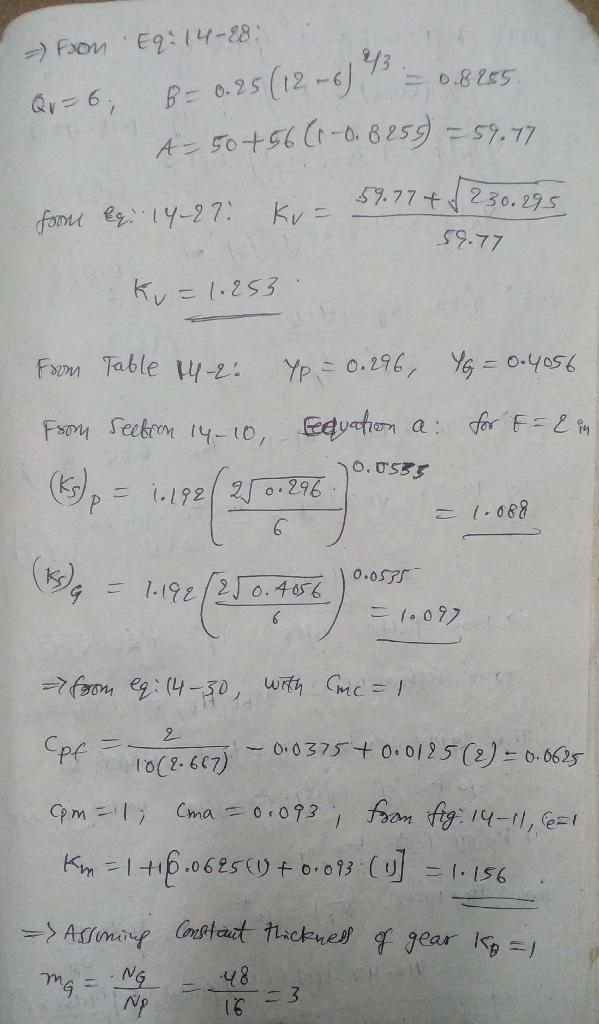 => From Eq: 14-28:
Qv = 6; B = 0.25 (12-6)^2/3 = 0.8255
A = 50+56 (1-0.8255) = 59.77
from Eq: 14-27: Kv = (59.77 + √230.295) / 59.77
Kv = 1.253
From Table 14-2: YP = 0.296, YG = 0.4056
From Section 14-10, Equation a: for F = 2 in
(Ks)P = 1.192 (2√0.296 / 6)^0.0535 = 1.088
(Ks)G = 1.192 (2√0.4056 / 6)^0.0535 = 1.097
=> from eq: 14-30, with Cmc = 1
Cpf = 2 / 10(2.667) - 0.0375 + 0.0125 (2) = 0.0625
Cpm = 1; Cma = 0.093; from fig: 14-11, Ce=1
Km = 1 + 1[0.0625 (1) + 0.093 (1)] = 1.156
=> Assuming Constant thickness of gear KB = 1
mG = NG / NP = 48 / 16 = 3